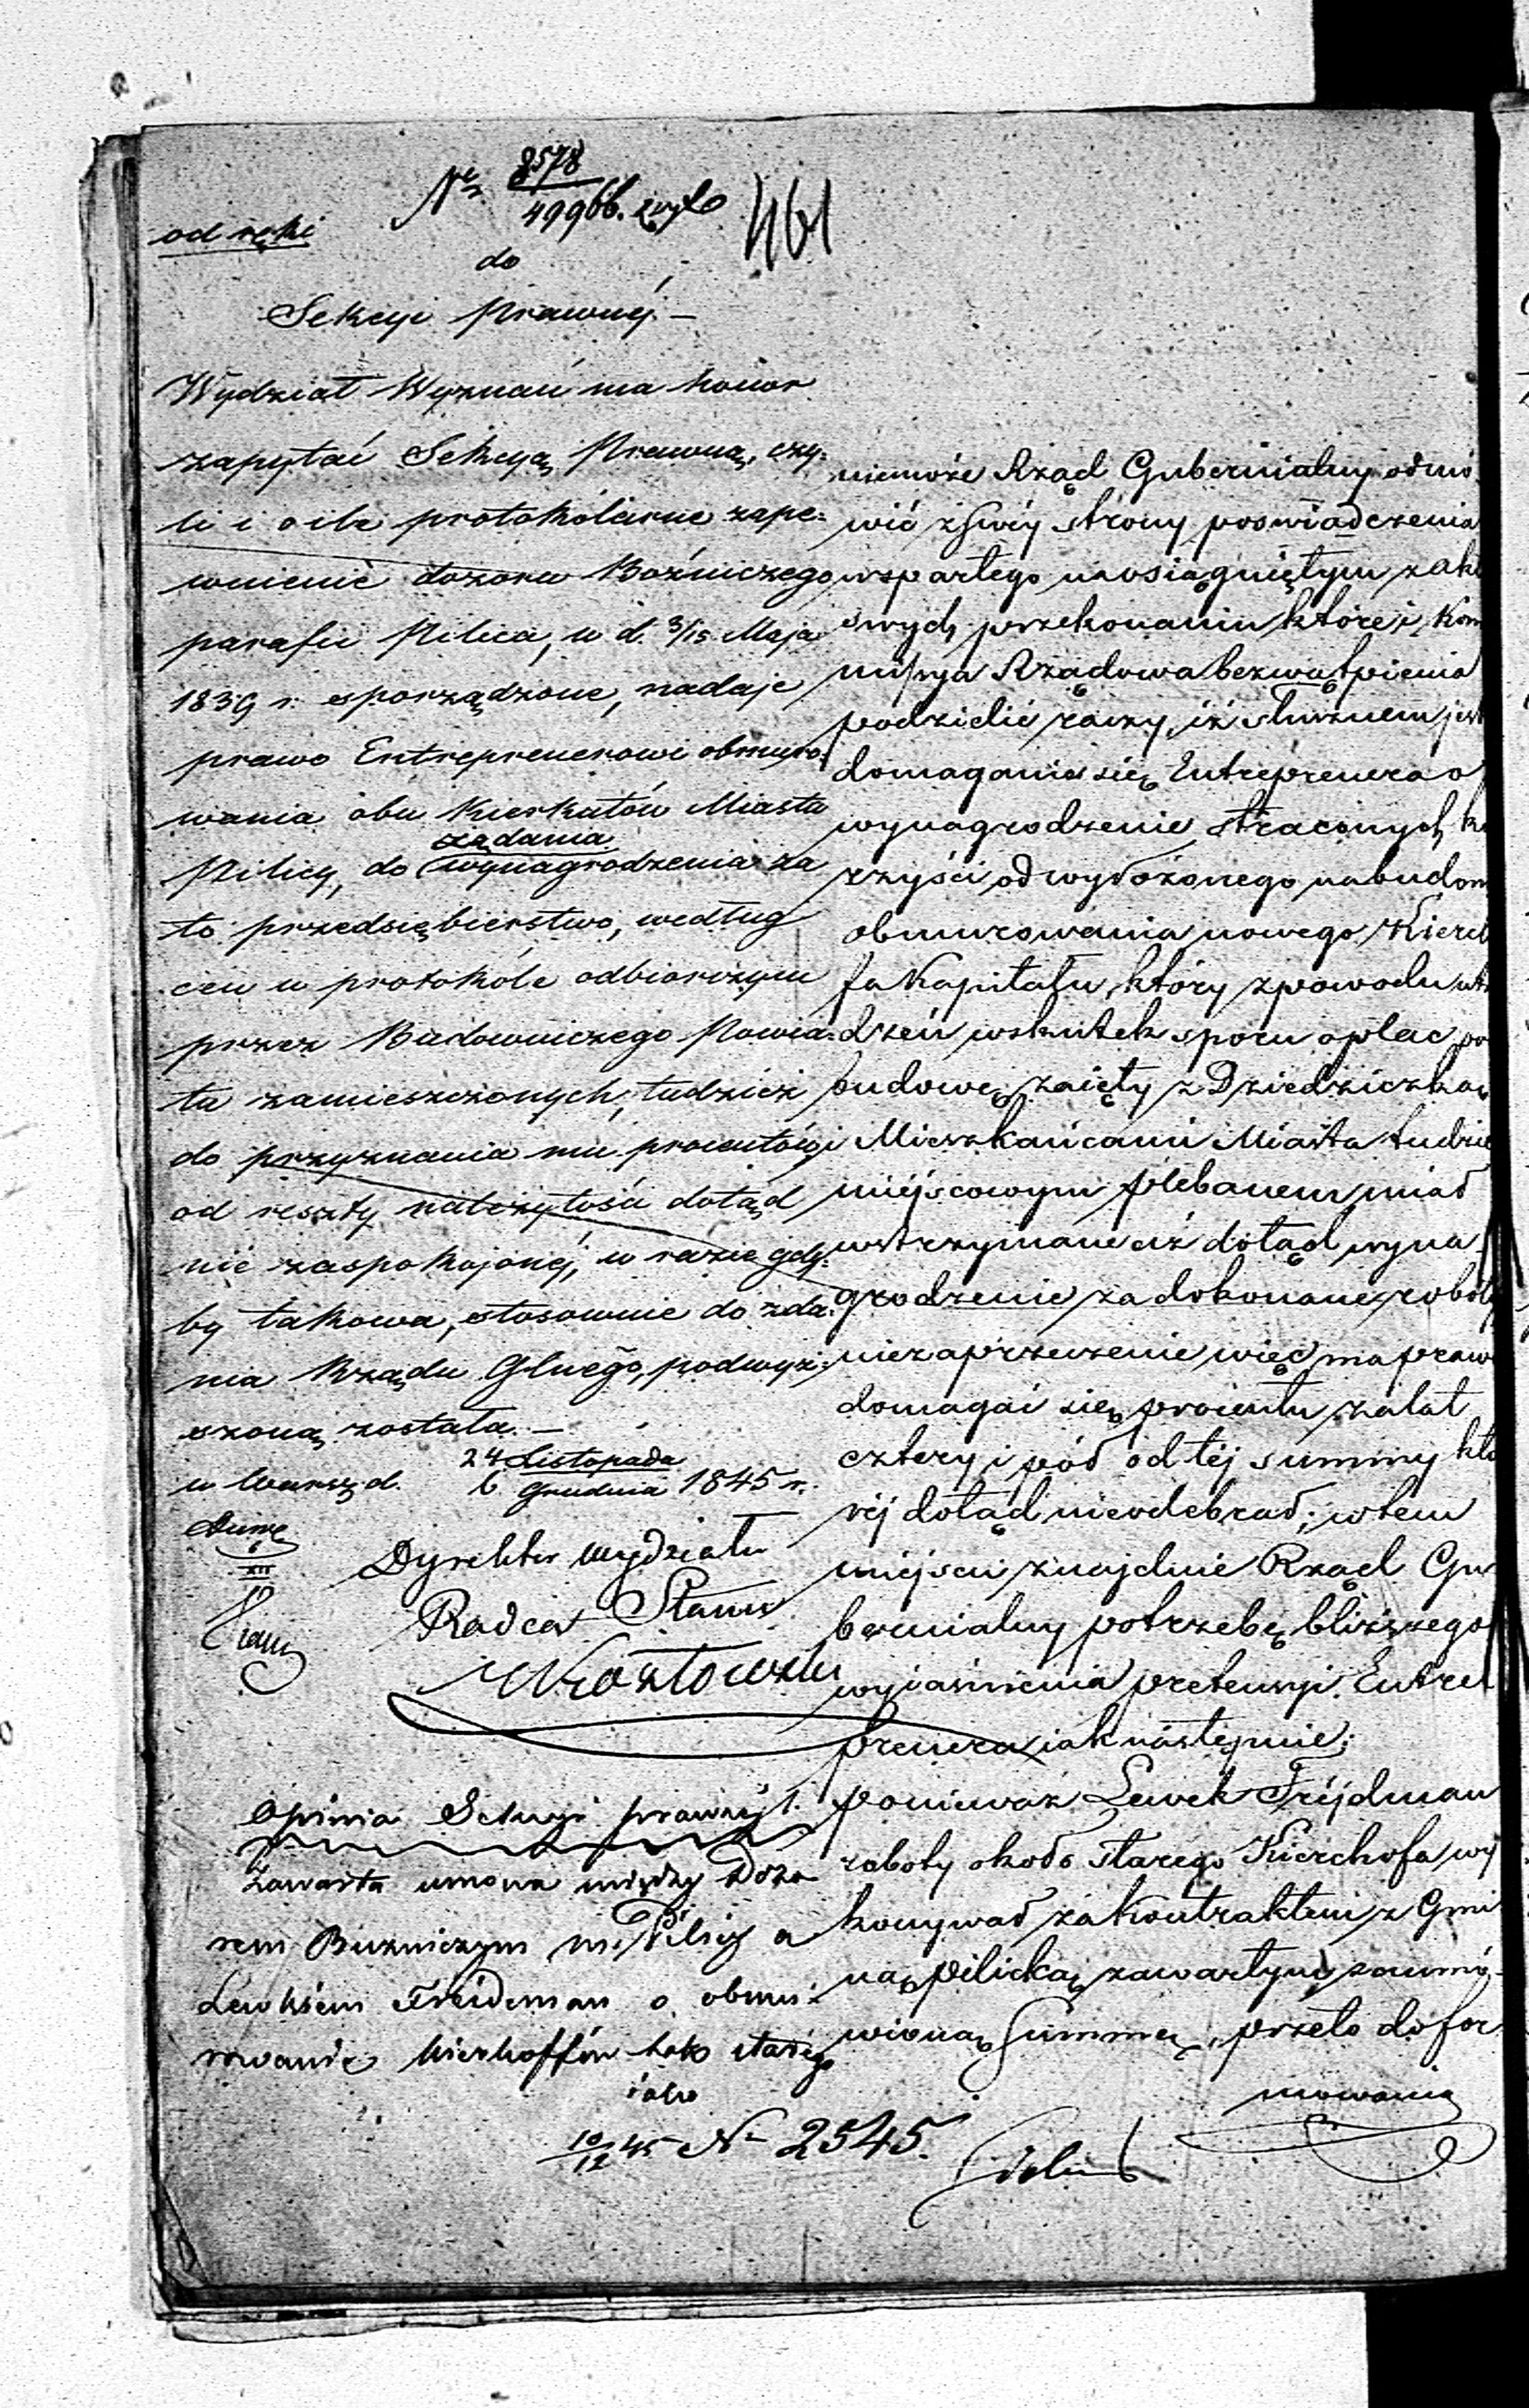 Nº 8578
49966. zydo
461
od ręki
do
Sekcyi Prawnéj. —
Wydział Wyznań ma honor
zapytać Sekcyą Prawną, czy-
li i o ile protokólarne zape-
wnienie dozoru Bożniczego
parafii Pilica, w d. 3/15 Maja
1839 r. sporządzone, nadaje
prawo Entreprenerowi obmuro-
wania obu Kierkutów Miasta
żądania
Pilicy, do wynagrodzenia za
to przedsiębierstwo, według
cen w protokóle odbiorczym
przez Budowniczego Powia-
tu zamieszczonych, tudzież
do przyznania mu procentów
od reszty należytości dotąd
nie zaspokojonéj, w razie gdy-
by takowa, stosownie do zda-
nia Rządu Glnego, podwyż-
szoną została. —
w Warsz. d. 24 Listopada
6 Grudnia 1845 r.
Dyrektor Wydziału
Radca Stanu
Opinia Sekcyi prawnéj
Zawarta umowa między Dozo
rem Buzniczym m. Pilicy a
Lewkiem Freidman o obmu-
rowanie Kierkoffów tak starego
iako
10/12 45 Nº 2545.
niemoże Rząd Gubernialny odmó-
wić z swéy strony poświadczenia
wspartego na osiągniętym z akt
swych przekonaniu które i Kom
missya Rządowa bezwątpienia
podzielić raczy, iż słusznem jest
domaganie się Entreprenera o
wynagrodzenie straconych ko
rzyści od wyłożonego na budowę
obmurowania nowego Kierch
fa Kapitału, który z powodu
dzeń wskutek sporu o plac po
budowę zaięty z Dziedziczką
i Mieszkańcami Miasta tudzie
mieyscowym plebanem miał
wstrzymane aż dotąd wyna-
grodzenie za dokonane roboty
niezaprzeczenie więc ma prawo
domagać się procentu za lat
cztery i pół od téj summy któ
réj dotąd nieodebrał; w tem
miejscu znajduie Rząd Gu
bernialny potrzebę bliższego
wyiaśnienia pretensyi Entre
prenera iak następnie:
ponieważ Lewek Frejdman
roboty około starego Kierchofa wy
konywał za Kontraktem z Gmi
ną pilicką zawartym za umó-
wioną Summę, przeto do for
mowania